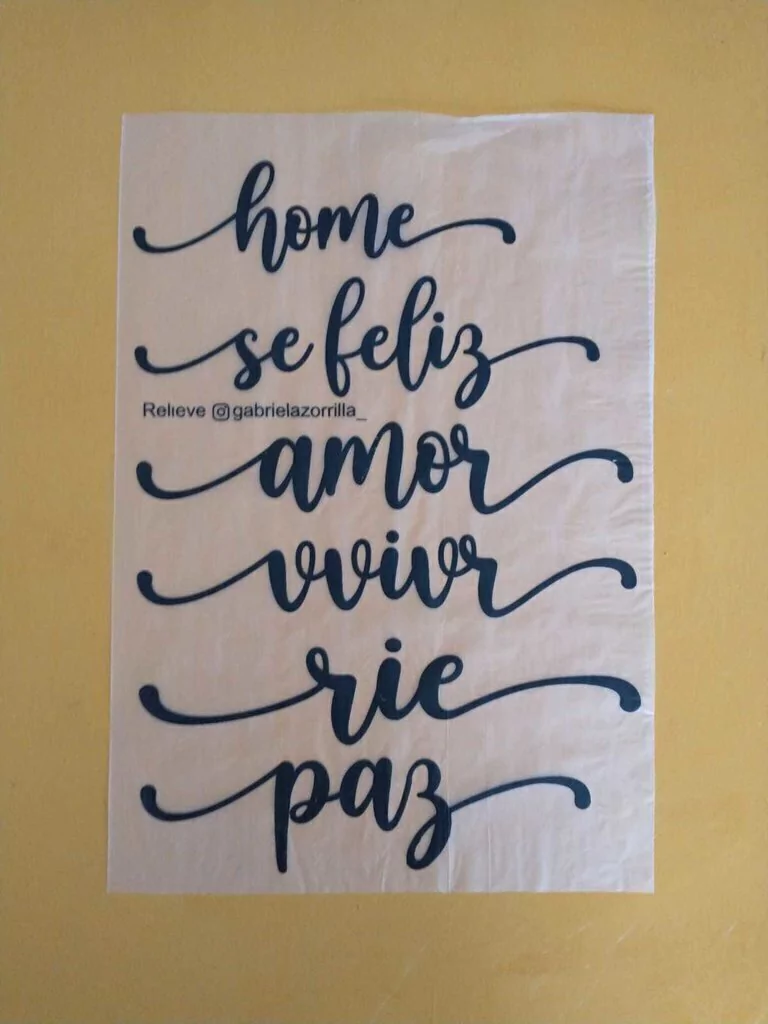 home
se feliz
Relieve @gabrielazorrilla_
amor
vvivr
rie
paz